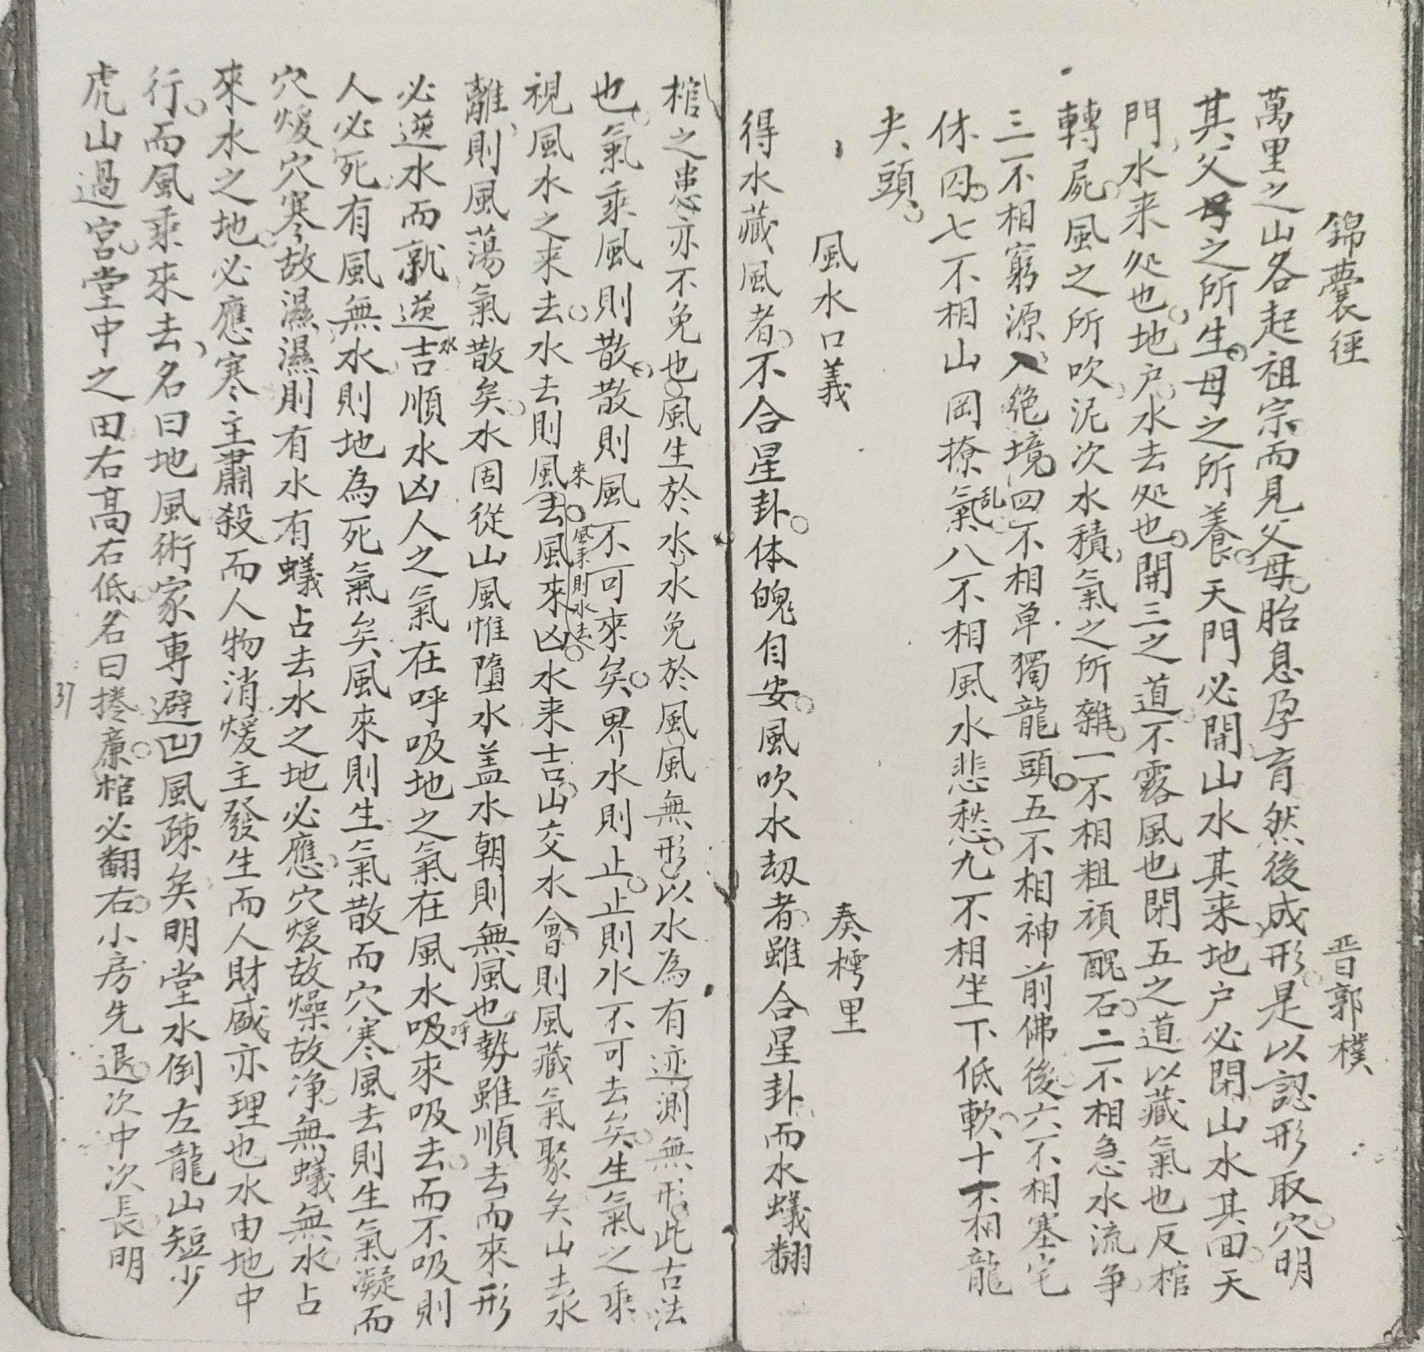 錦囊徑 晋郭樸
萬里之山各起祖宗而見父母胎息孕育然後成形是以認形取穴明
其父母之所生母之所養天門必開山水其来地户必閉山水其回天
門水来处也地户水去处也開三之道不露風也閉五之道以藏氣也反棺
轉屍風之所吹泥次水積氣之所雜一不相粗頑醜石二不相急水流争
三不相窮源入絶境四不相单獨龍頭五不相神前佛後六不相塞宅
休囚七不相山岡撩乱氣八不相風水悲愁九不相坐下低軟十不相龍
夫頭
風水口義 奏樗里
得水藏風者不合星卦体魄自安風吹水刼者雖合星卦而水蟻翻
棺之患亦不免也風生於水水免於風風無形以水為有迹測無形此古法
也氣乘風則散散則風不可來矣界水則止止則水不可去矣生氣之乘
視風水之来去水去則風來風来則水去去風來凶水来吉山交水會則風藏氣聚矣山去水
離則風蕩氣散矣水固從山風惟墮水盖水朝則無風也勢雖順去而來形
必逆水而就逆水吉順水凶人之氣在呼吸地之氣在風水吸呼來吸去而不吸則
人必死有風無水則地為死氣矣風來則生氣散而穴寒風去則生氣凝而
穴煖穴寒故濕濕則有水有蟻占去水之地必應穴煖故燥故净無蟻無水占
來水之地必應寒主肅殺而人物消煖主發生而人財盛亦理也水由地中
行而風乘來去名曰地風術家專避凹風疎矣明堂水倒左龍山短少
虎山過宮堂中之田右高右低名曰捲㢘棺必翻右小房先退次中次長明
37